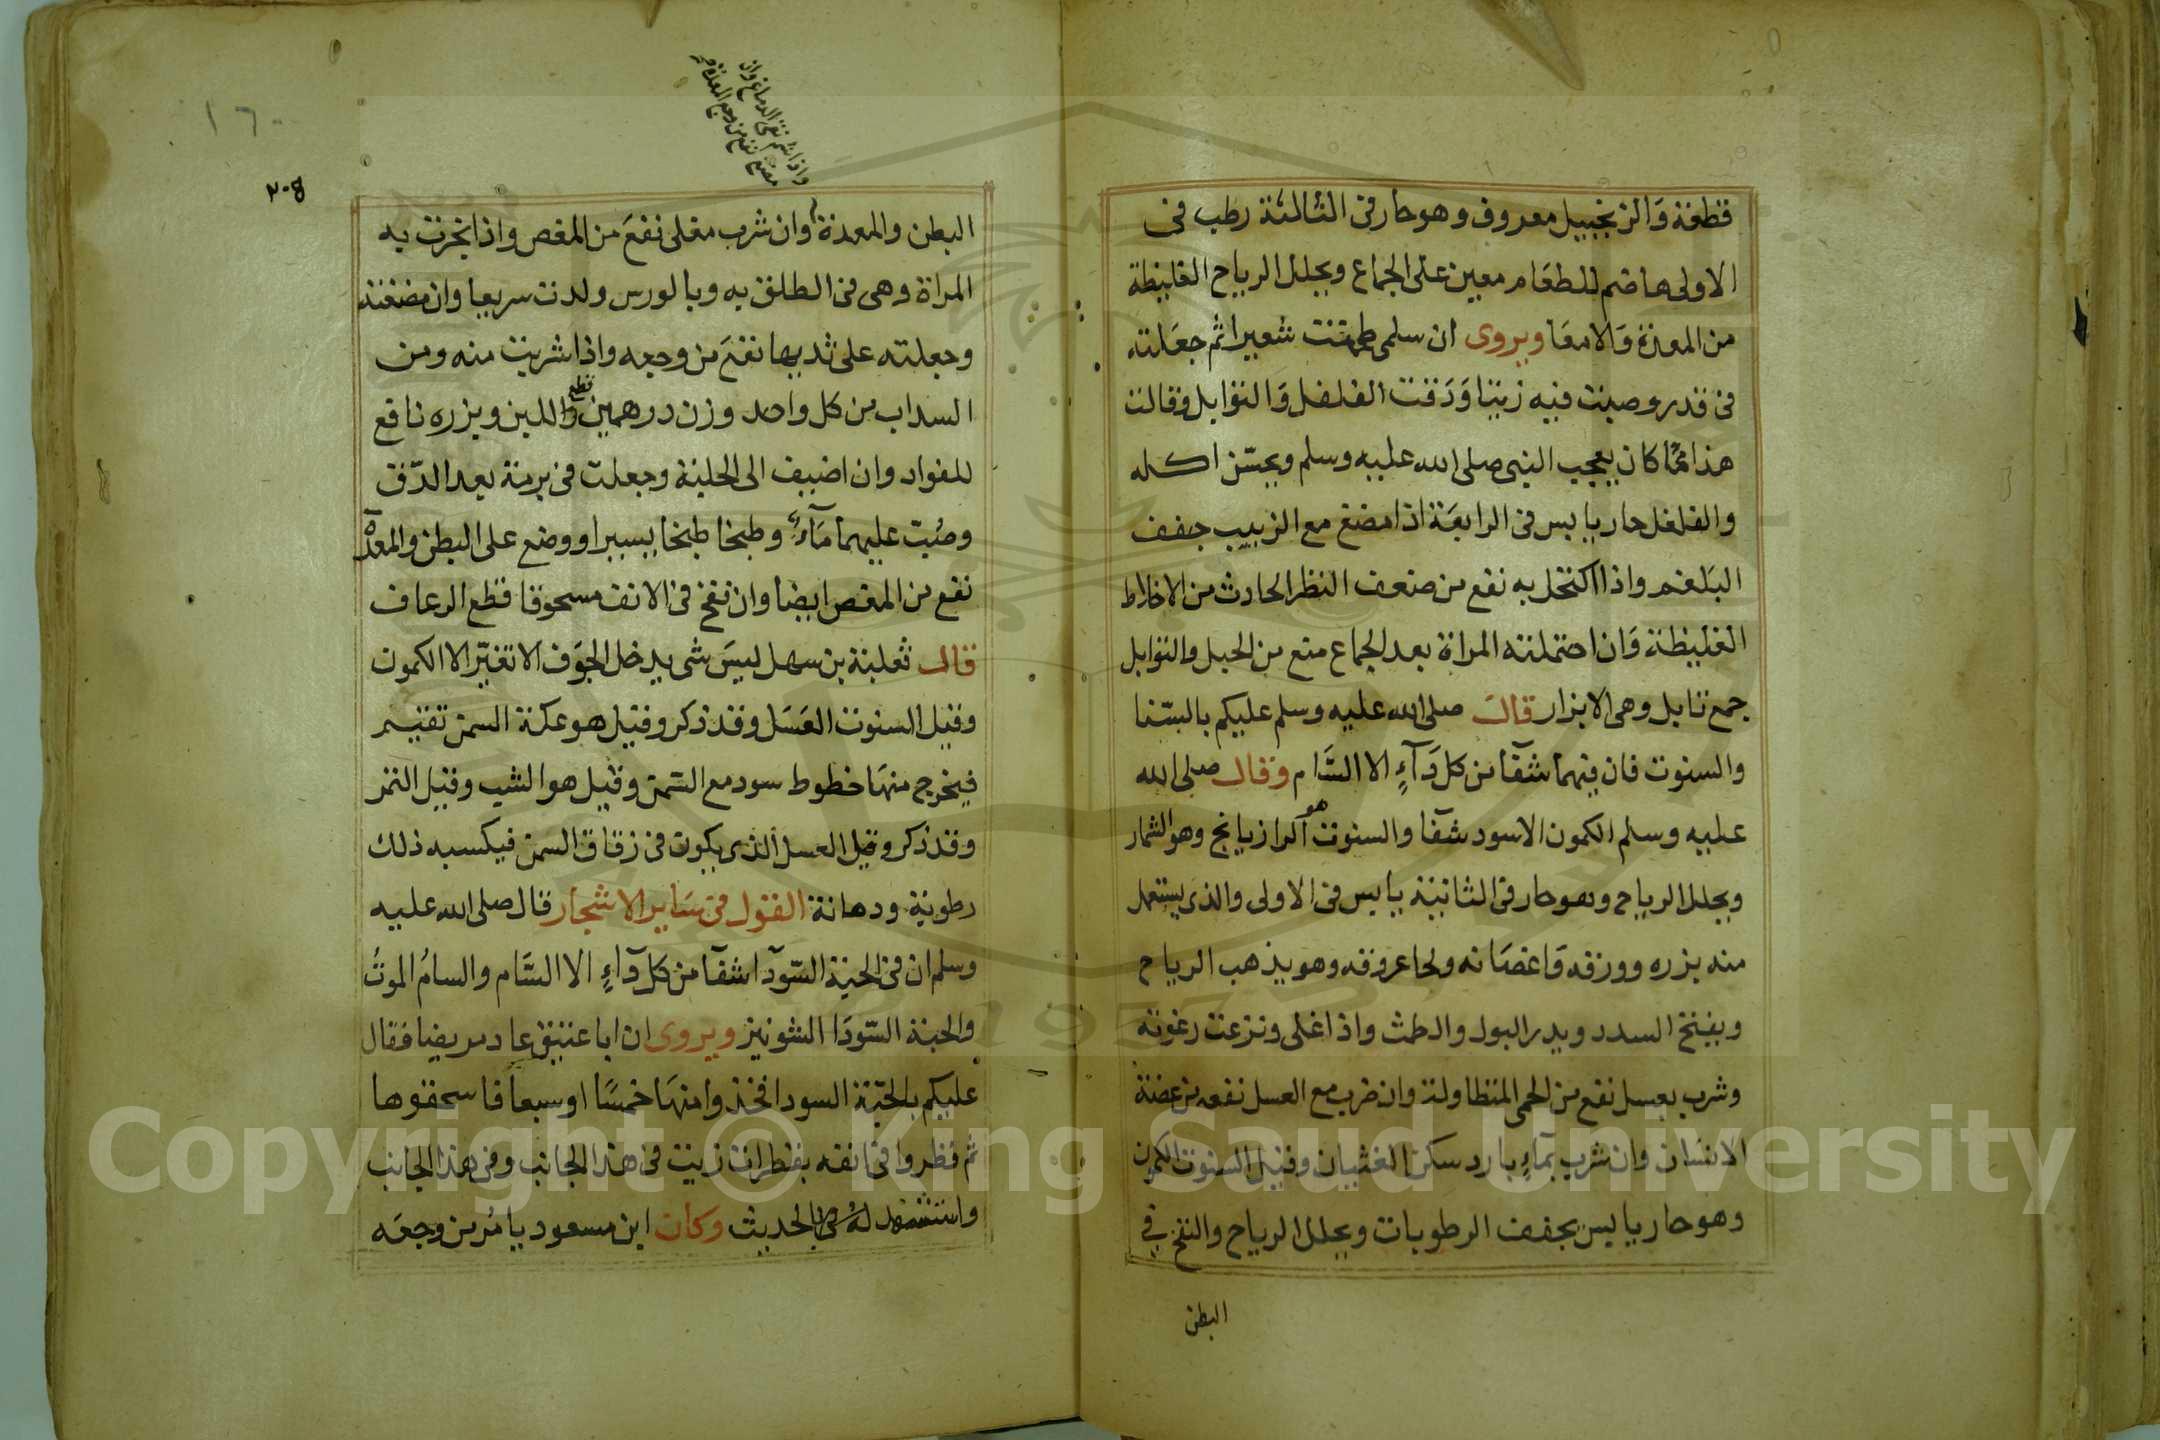 قطعة وَالزنجبيل معروف وهو حار فى الثالثة رطب فى
الاولى هاضم للطعَام معين على الجماع ويحلل الرياح الغليظة
من المعدة وَالامعَا ويروى ان سلمى طحنت شعيرا ثم جعَلته
فى قدر وصبت فيه زيتا وَدَقت الفلفل وَالتوابل وقالت
هذا مما كان يعجب النبى صلى الله عليه وسلم ويحسّن اكله
والفلفل حار يابس فى الرابعَة اذا مضغ مع الزبيب جفف
البَلغم واذا اكتحل به نفع من ضعف النظر الحادث من الاخلاط
الغليظة وَان احتملته المراة بعد الجماع منع من الحبل والتوابل
جمع تابل وهى الابزار قالَ صلى الله عليه وسلم عليكم بالسّنا
والسنوت فان فيهما شفآ من كل دَآءٍ الا السَّام وقال صلى الله
عليه وسلم الكمون الاسود شفآ والسنوت هو الرازيانج وهو الشمار
ويحلل الرياح وهو حار فى الثانية يابس فى الاولى والذى يستعمل
منه بزره وورقه وَاغصَانه ولحا عروقه وهو يذهب الرياح
ويفتح السدد ويدر البول والطمث واذا اغلى ونزعت رغوته
وشرب بعسل نفع من الحمى المتطاولة وان ضرب مع العسل نفعه من عضة
الانسَان وان شرب بمآءٍ بارد سكن الغثيان وقيل السنوت الكمون
وهو حار يابس يجفف الرطوبات ويحلل الرياح والنفخ فى
البطن
واذا شم نقى الدماغ وان
مضغ نفع من وجع المعدة
٢٠٤
البطن والمعدة وان شرب مغلى نفعَ من المغص واذا بخرت به
المراة وهى فى الطلق به وبالورس ولدت سريعا وان مضغته
وجعلته على ثديها نفعَ من وجعه واذا شربت منه ومن
السداب من كل واحد وزن درهمين قطع واللبن وبزره نافع
للفواد وان اضيف الى الحلبة وجعلت فى برمة بعد الدّق
وصُبّ عليهما مَآءٌ وطبخا طبخا يسيرا ووضع على البطن والمعدة
نفع من المغص ايضا وان نفخ فى الانف مسحوقا قطع الرعاف
قال ثعلبة بن سهل ليسَ شى يدخل الجوَف الا تغيّر الا الكمون
وقيل السنوت العَسَل وقد ذكر وقيل هو عكة السمن تقسم
فيخرج منهَا خطوط سود مع السّمن وقيل هو الشبت وقيل التمر
وقد ذكر وقيل العسل الذى يكون فى زقاق السمن فيكسبه ذلك
رطوبة ودهانة القول فى سَاير الاشجار قال صلى الله عليه
وسلم ان فى الحبة السّودآ شفآ من كل دآءٍ الا السَّام والسامُ الموتُ
والحبة السّودَا الشونيز ويروى ان ابا عتيق عاد مريضا فقال
عليكم بالحبّة السودا فخذوا منهَا خمسًا او سبعا فاسحقوها
ثم قطروا فى انفه بقطرات زيت فى هذا الجانب وفى هذا الجانب
واستشهد لهُ بالحديث وكان ابن مسعود يامُر من وجعَه